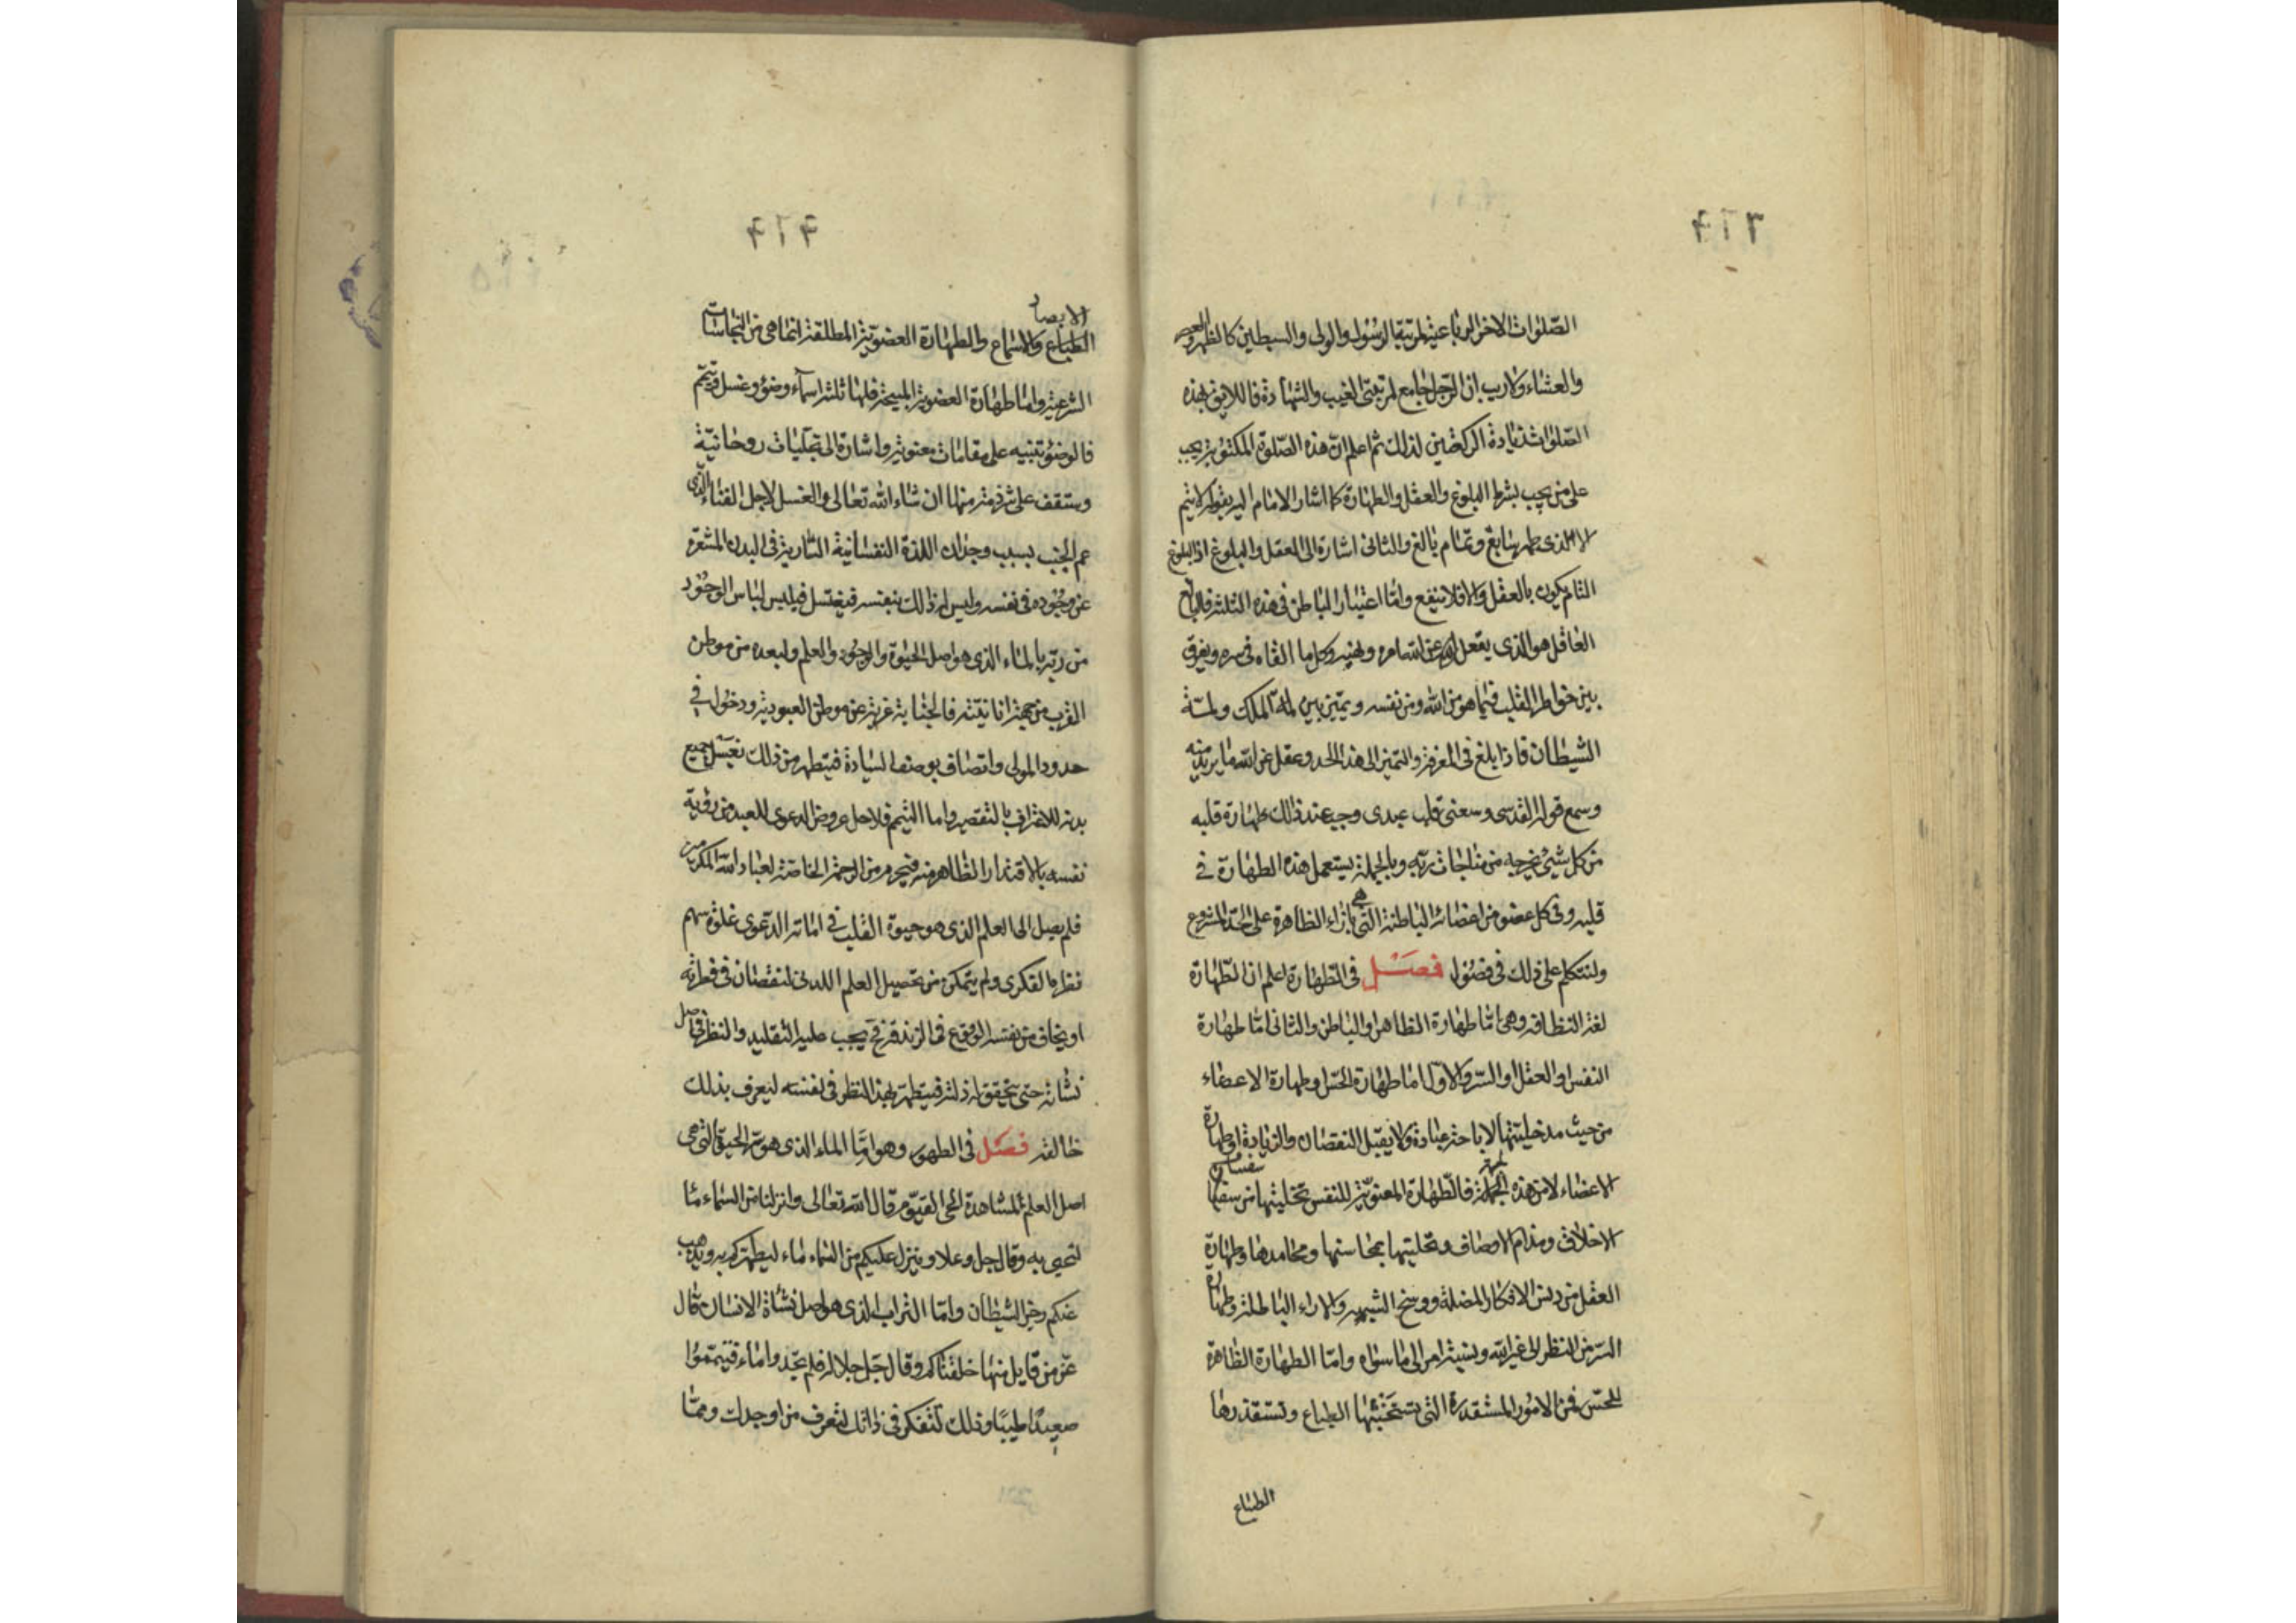 الصلوات الاخر الرباعية لمرتبة الرسول والولى والسبطين كالظهر والعصر
والعشاء ولاريب ان الرجل جامع لمرتبتى الغيب والشهادة فاللايق بهذه
الصلوات زيادة الركعتين لذلك ثم اعلم ان هذه الصلوة المكتوبة يجب
على من يجب بشرط البلوغ والعقل والطهارة كما اشار الامام اليه بقوله لا يتم
الا لذى طهر سابغ وتمام بالغ والثانى اشارة الى العقل والبلوغ اذ البلوغ
التام يكون بالعقل والا فلا ينفع واما اعتبار الباطن فى هذه الثلثة فالبالغ
العاقل هو الذى يعقل عن الله امره ونهيه وكل ما القاه فى سره ويفرق
بين خواطر القلب فيما هو من الله ومن نفسه ويميز بين لمة الملك ولمة
الشيطان فاذا بلغ فى المعرفة والتميز الى هذا الحد وعقل عن الله ما يريد منه
وسمع قوله القدسى وسعنى قلب عبدى وجب عند ذلك طهارة قلبه
من كل شىء يخرجه من مناجات ربه وبالجملة يستعمل هذه الطهارة فى
قلبه وفى كل عضو من اعضائه الباطنة التى هى بازاء الظاهرة على الحد المشروع
ولنتكلم على ذلك فى فصول فصل فى الطهارة اعلم ان الطهارة
لغة النظافة وهى اما طهارة الظاهر او الباطن والثانى اما طهارة
النفس او العقل او السر والاول اما طهارة الحس او طهارة الاعضاء
من حيث مدخليتها لاباحة عبادة ولا يقبل النقصان والزيادة او طهارة
الاعضاء لا من هذه الجهة فالطهارة المعنوية للنفس تخليتها من سفساف
الاخلاق ومذام الاوصاف وتحليتها بمحاسنها ومحامدها وطهارة
العقل من دنس الافكار المضلة ووسخ الشبهه والاراء الباطلة وطهارة
السر من النظر الى غير الله ونسبة امر الى ما سواه واما الطهارة الظاهرة
للحس فمن الامور المستقذرة التى تستخبثها الطباع وتستقذرها
الطباع
الابصار
الطباع والاسماع والطهارة العضوية المطلقة انما هى من النجاسات
الشرعية واما طهارة العضوية المبيحة فلها ثلثة اسماء وضوء وغسل وتيمم
فالوضوء تنبيه على مقامات معنوية واشارة الى تجليات روحانية
وستقف على شرذمة منها ان شاء الله تعالى والغسل لاجل الفناء الذى
عم الجنب بسبب وجدان اللذة النفسانية السارية فى البدن المشعرة
عن وجوده فى نفسه وليس له ذلك بنفسه فيغتسل فيلبس لباس الوجود
من ربه بالماء الذى هو اصل الحيوة والوجود والعلم ولبعده من موطن
القرب من جهة انانيته فالجنابة غربة عن موطن العبودية ودخول فى
حدود المولى واتصاف بوصف السيادة فيتطهر من ذلك بغسل جميع
بدنه للاعتراف بالتقصير واما التيمم فلاجل عروض الدعوى للعبد من رؤية
نفسه بالاقتدار الظاهر منه فيحرم من الرحمة الخاصة لعباد الله المكرمين
فلم يصل الى العلم الذى هو حيوة القلب فى اماته الدعوى غلوة سهم
نظره الفكرى ولم يتمكن من تحصيل العلم اللدنى لنقصان فى فطرته
او يخاف من نفسه الوقوع فى الزندقة فح يجب عليه التقليد والنظر فى اصل
نشأته حتى تحقق له ذلته فيتطهر بهذا النظر فى نفسه ليعرف بذلك
خالقه فصل فى الطهور وهو اما الماء الذى هو سر الحيوة التى هى
اصل العلم لمشاهدة الحى القيوم قال الله تعالى وانزلنا من السماء ماء
لنحيى به وقال جل وعلا وينزل عليكم من السماء ماء ليطهركم به ويذهب
عنكم رجز الشيطان واما التراب الذى هو اصل نشأة الانسان قال
عز من قايل منها خلقناكم وقال جل جلاله فلم تجدوا ماء فتيمموا
صعيدا طيبا وذلك لتفكر فى ذاتك لتعرف من اوجدك ومما